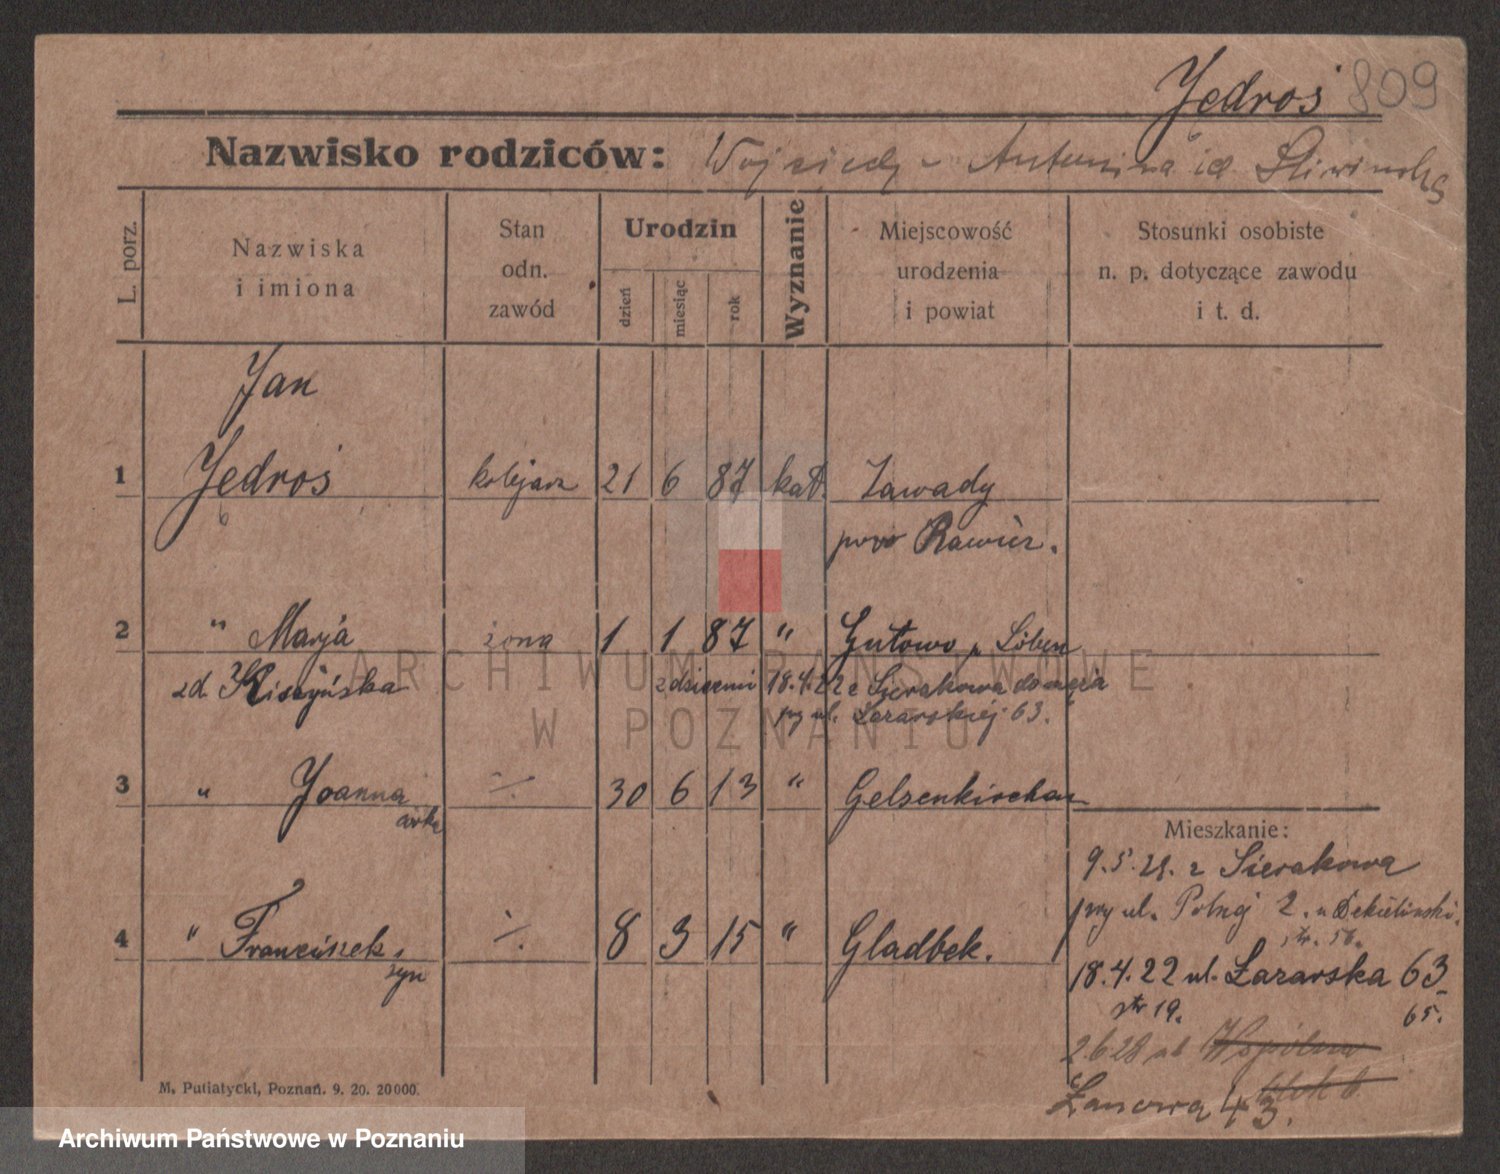 Jedroś 809
Nazwisko rodziców: Wojciech Antonina
L. porz.
Nazwiska
i imiona
Stan
odn.
zawód
Urodzin
dzień
miesiąc
rok
Wyznanie
Miejscowość
urodzenia
i powiat
Stosunki osobiste
n. p. dotyczące zawodu
i t. d.
Jan
1 Jedroś kolejarz 21 6 87 kat. Zawady
pow Rawicz.
2 " Marja żona 1 1 87 " Gutowo
zd. z dziećmi 18.4.22 z Sierakowa do męża
przy ul. Łazarskiej 63.
3 " Joanna ·/. 30 6 13 " Gelsenkirchen
córka
4 " Franciszek, ·/. 8 3 15 " Gladbek.
syn
Mieszkanie:
9.5.21. z Sierakowa
przy ul. Polnej 2.
str. 56.
18.4.22 ul. Łazarska 63
str 19. 65.
2.6.28 ul Wspólna
Łanowa 43.
M. Putiatycki, Poznań. 9. 20. 20000.
ARCHIWUM PAŃSTWOWE
W POZNANIU
Archiwum Państwowe w Poznaniu